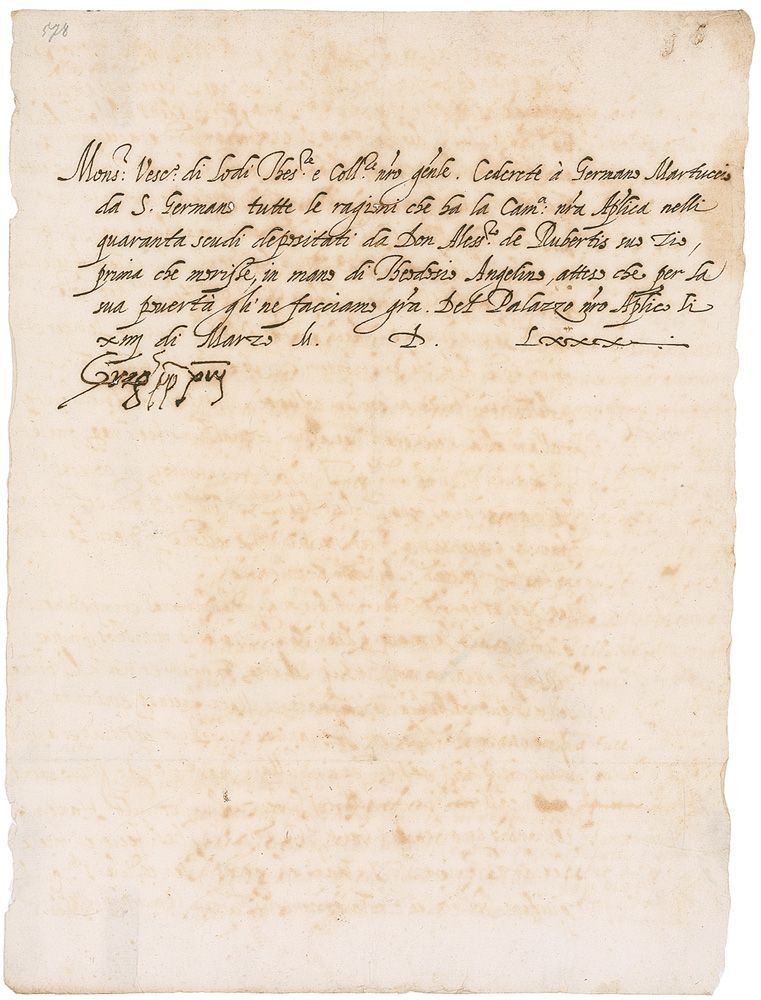 578
Mons.r Vesc.o di Lodi Thes.re e Coll.re nro g'nle. Cederete à Germano Martuccio
da S. Germano tutte le ragioni che ha la Cam.a nra Ap'lica nelli
quaranta scudi depositati da Don Aless.o de Rubertis suo zio,
prima che morisse, in mano di Theodosio Angelino, atteso che per la
sua povertà gli ne facciamo gra. Del Palazzo nro Ap'lico li
xiiij di Marzo M. D. Lxxx
Greg pp xiij